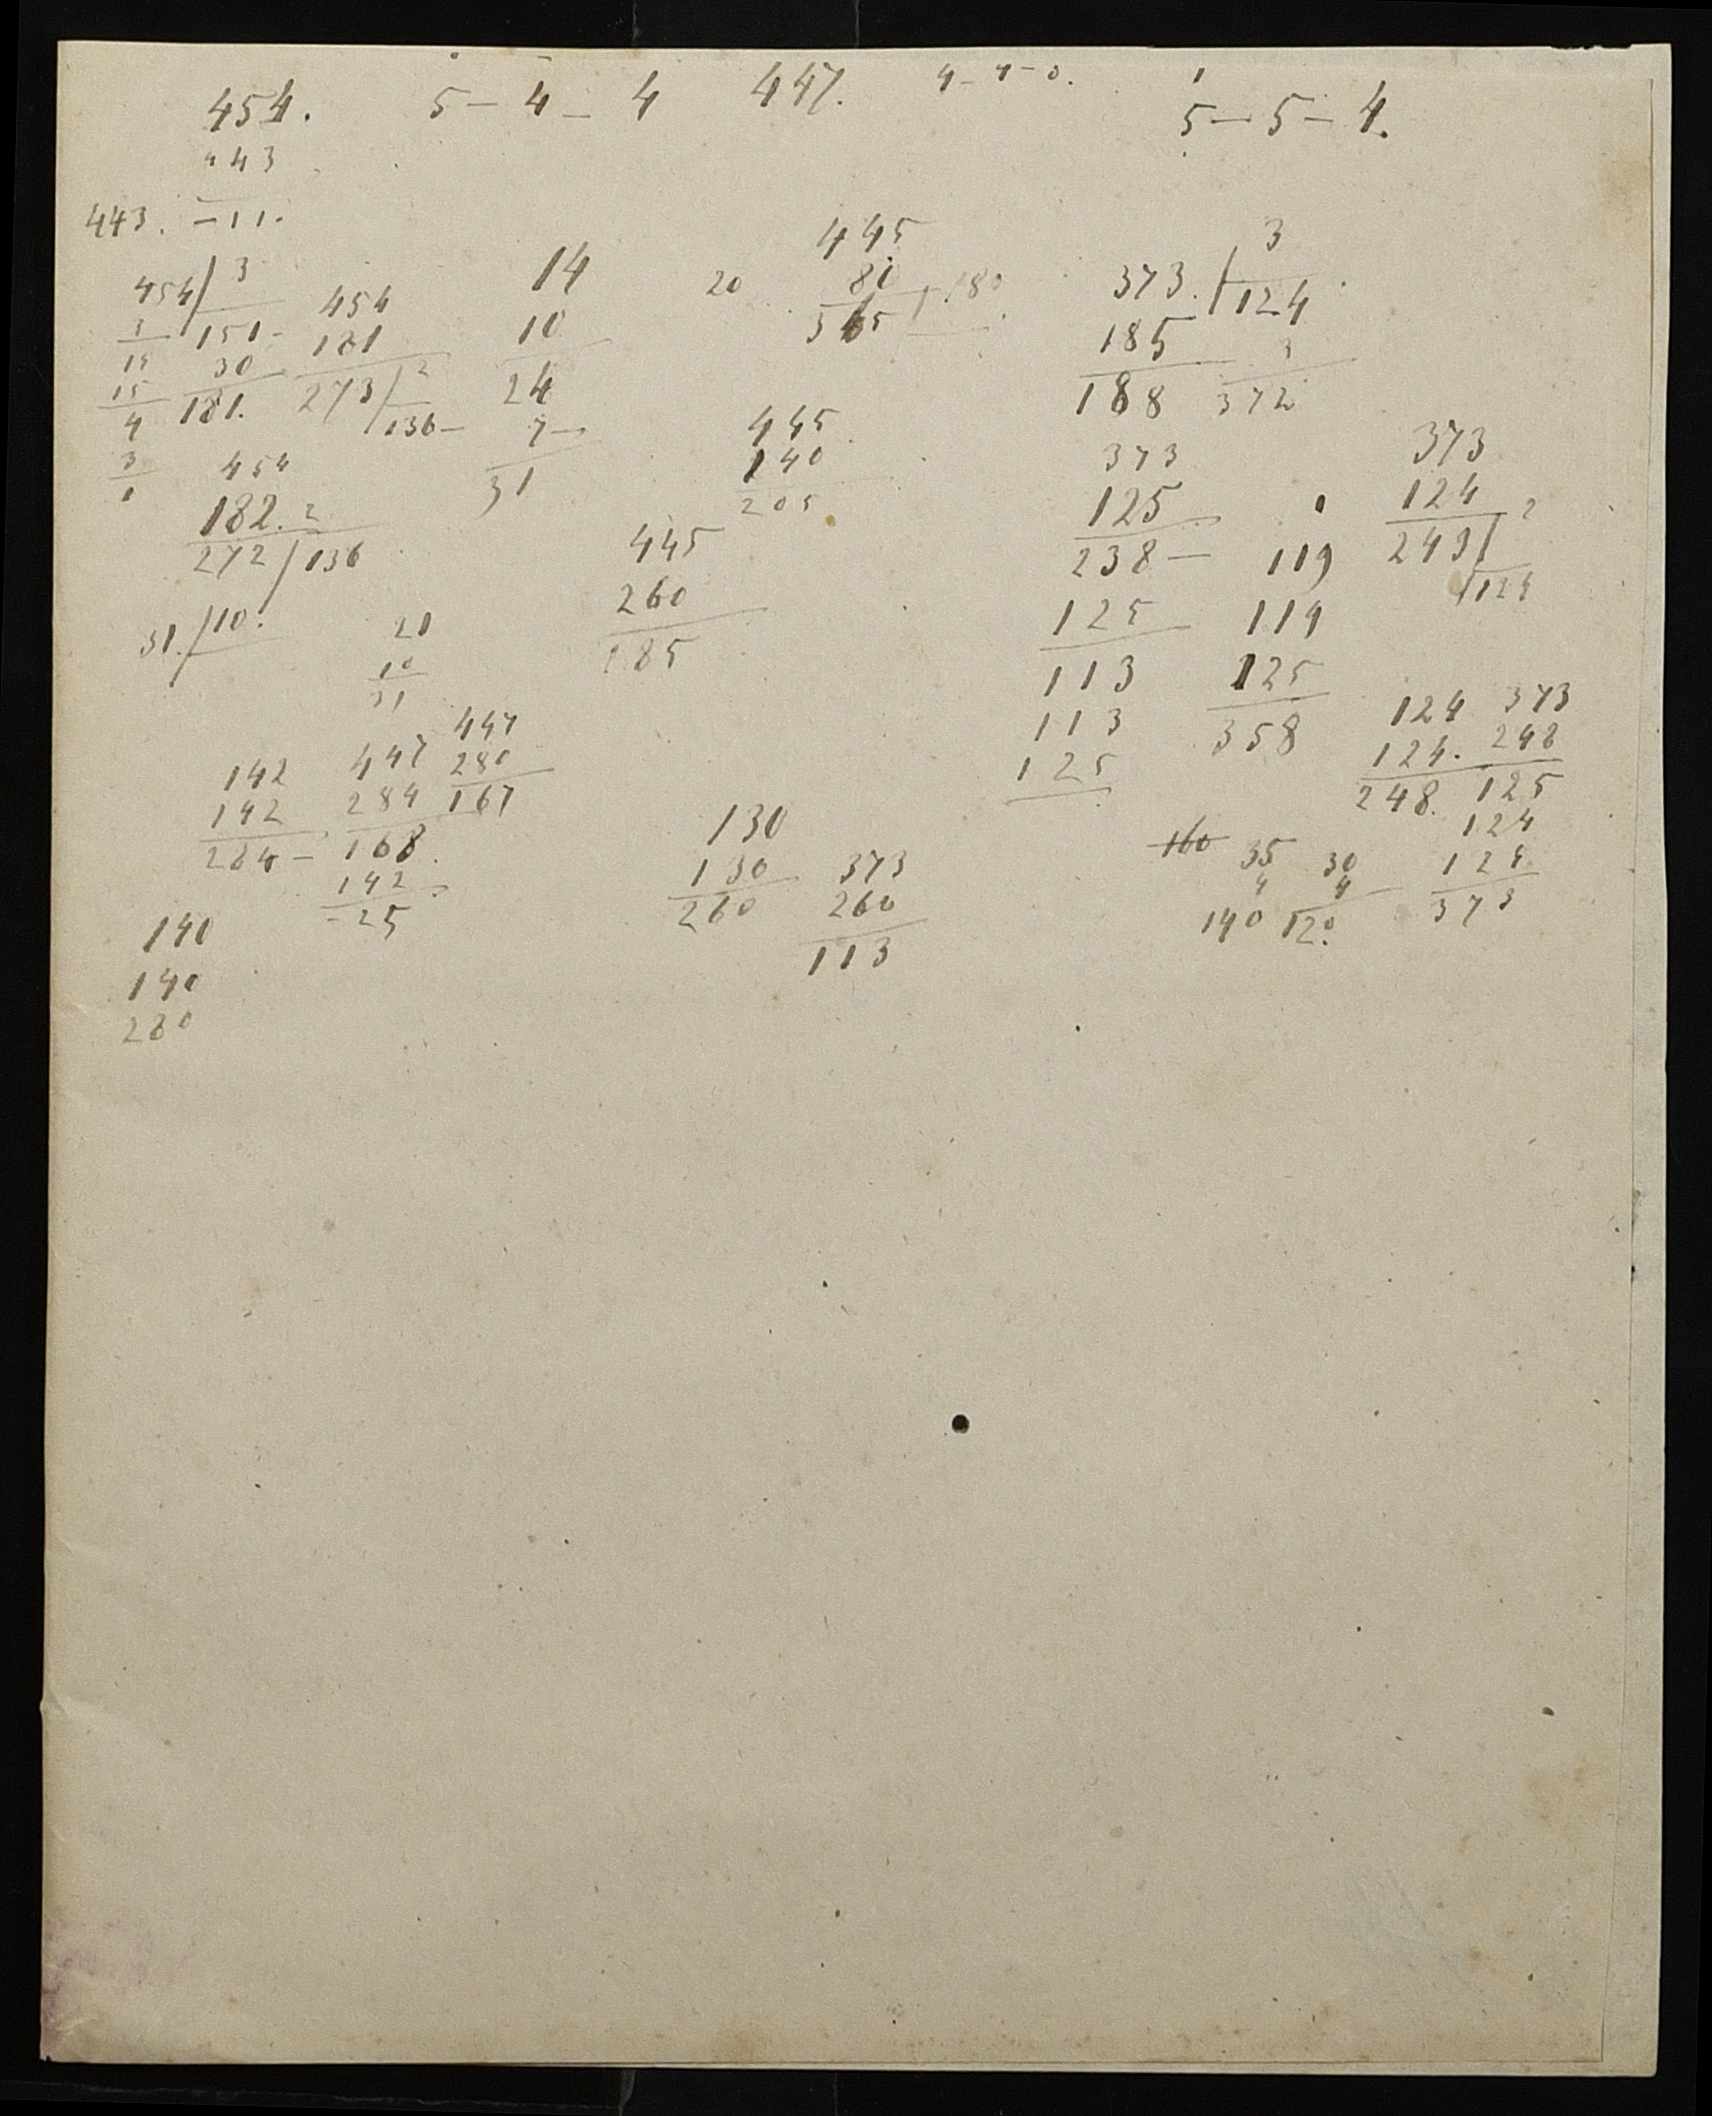 454. 5 – 4 – 4 447. 4 – 4 – 0. 5 – 5 – 4.
443
443. – 11.
454 / 3
3 151 –
15 30
15 181.
4
3
1
454
181
273 / 2
136 –
14
10
24
7 –
31
20
445
80 180
365
373. / 3
185 124
188 3
372
454
182. 2
272 / 136
445
140
205
373
125
238 – 119
125 119
113 125
113 358
125
373
124
243 / 2
124
31. / 10.
21
10
31
445
260
185
142
142
284 –
447
284
168.
142
– 25
447
280
167
124
124.
248.
373
248
125
124
124
373
130
130
260
373
260
113
160 35 30
4 4
140 120.
140
140
280